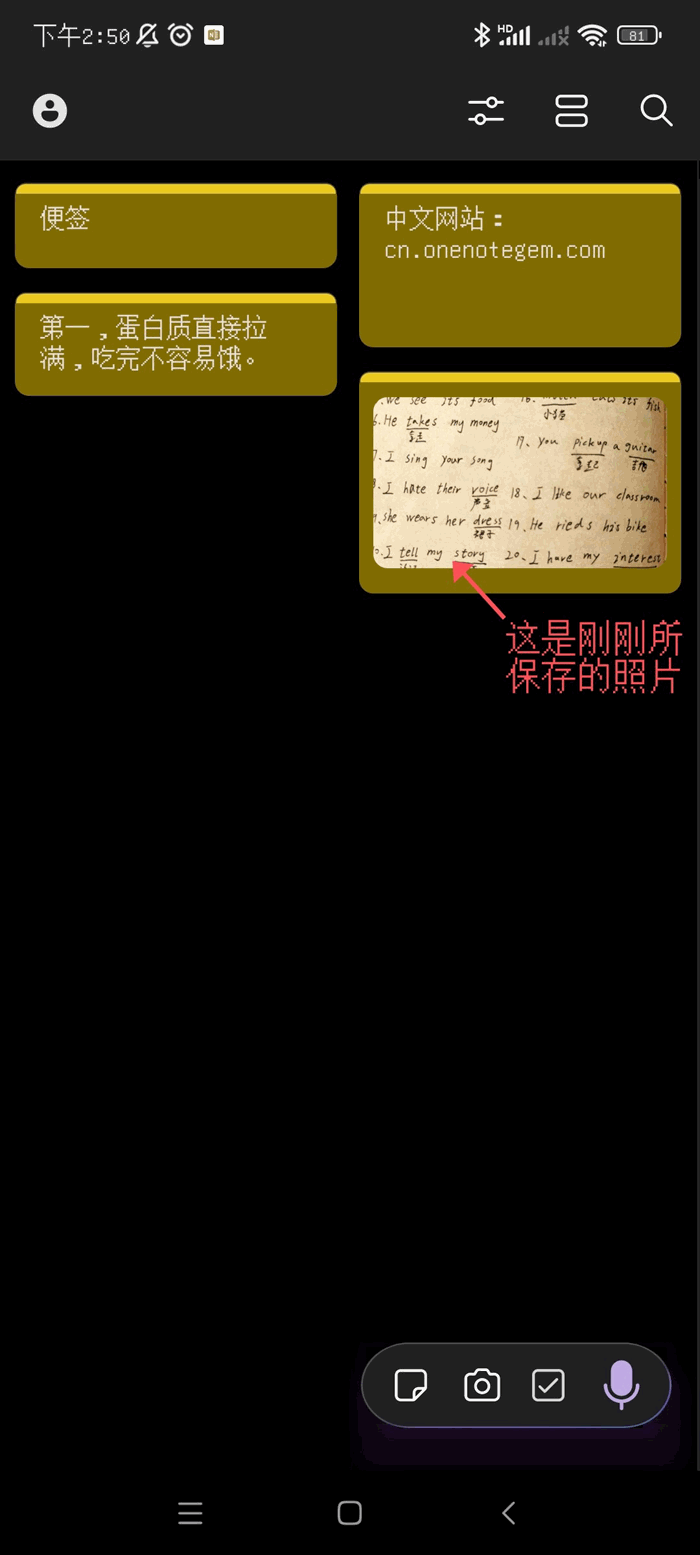 下午2:50
HD
81
便签
第一，蛋白质直接拉
满，吃完不容易饿。
中文网站：
cn.onenotegem.com
.we see its food
6.He takes my money
拿走
7.I sing your song
8.I hate their voice
声音
9.she wears her dress
裙子
10.I tell my story
16.
17、you pickup a guitar
拿起 吉他
18、I like our classroom
19、He rieds his bike
20、I have my interest
这是刚刚所
保存的照片